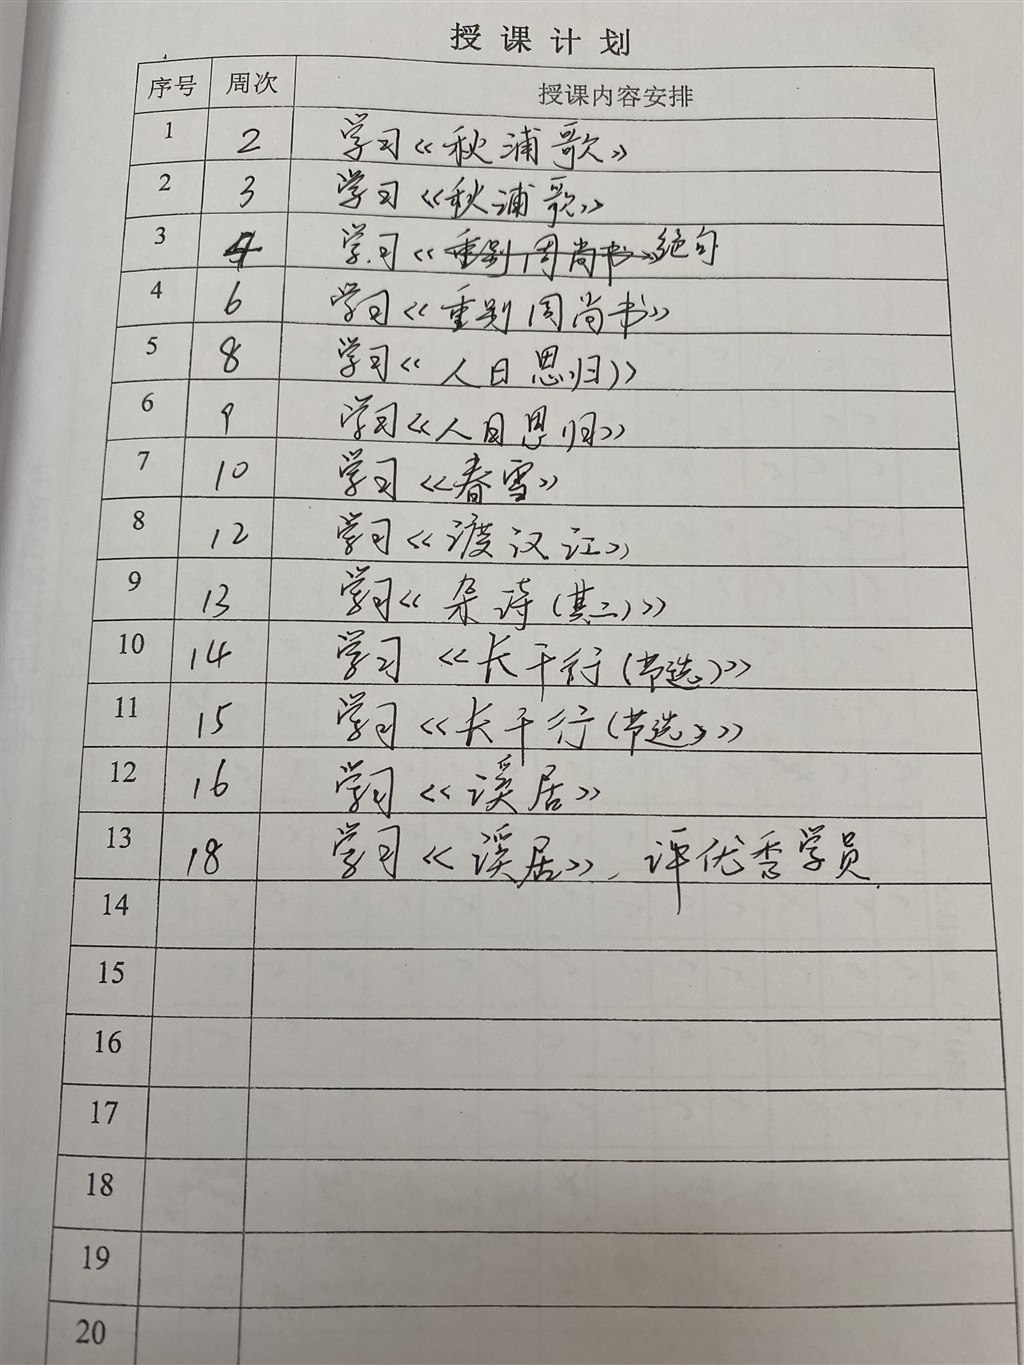 授课计划
序号 周次 授课内容安排
1 2 学习《秋浦歌》
2 3 学习《秋浦歌》
3 4 学习《重别周尚书》绝句
4 6 学习《重别周尚书》
5 8 学习《人日思归》
6 9 学习《人日思归》
7 10 学习《春雪》
8 12 学习《渡汉江》
9 13 学习《杂诗(其二)》
10 14 学习《长干行(节选)》
11 15 学习《长干行(节选)》
12 16 学习《溪居》
13 18 学习《溪居》,评优秀学员
14
15
16
17
18
19
20